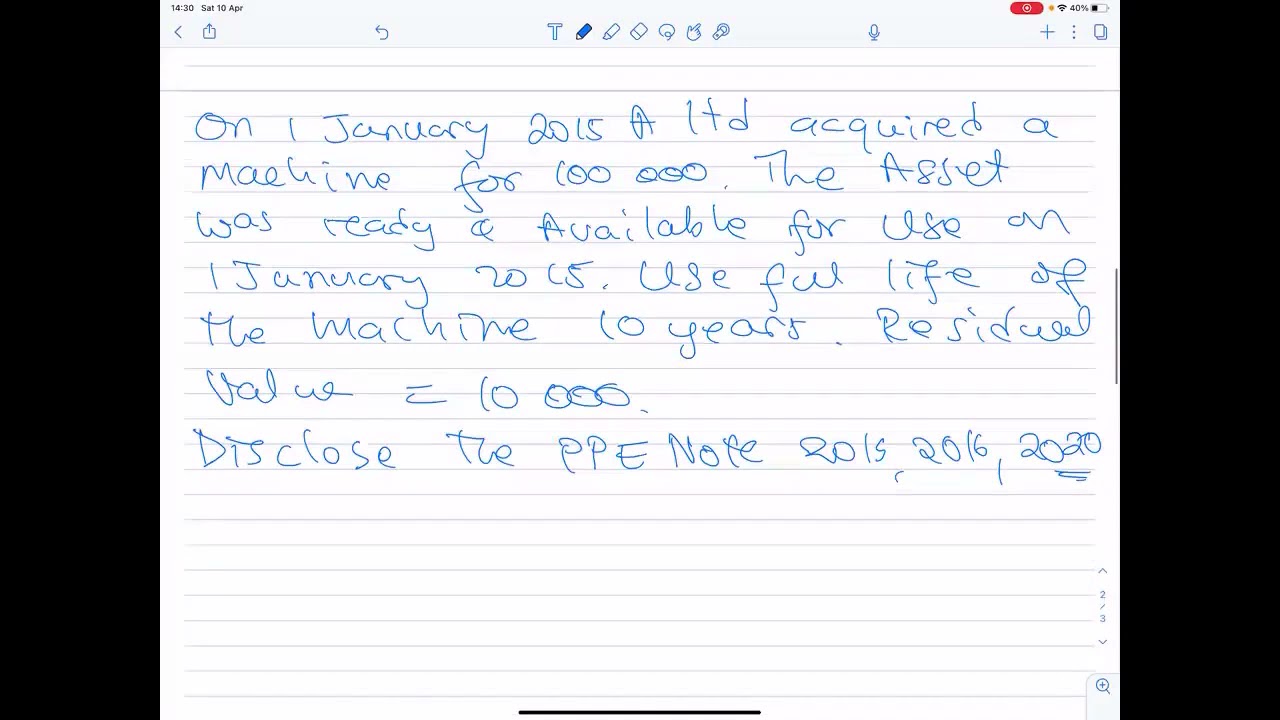 14:30 Sat 10 Apr
40%
T
On 1 January 2015 A ltd acquired a
machine for 100 000. The Asset
was ready & Available for use on
1 January 2015. Useful life of
the machine 10 years. Residual
Value = 10 000.
Disclose the PPE Note 2015, 2016, 2020
2
/
3